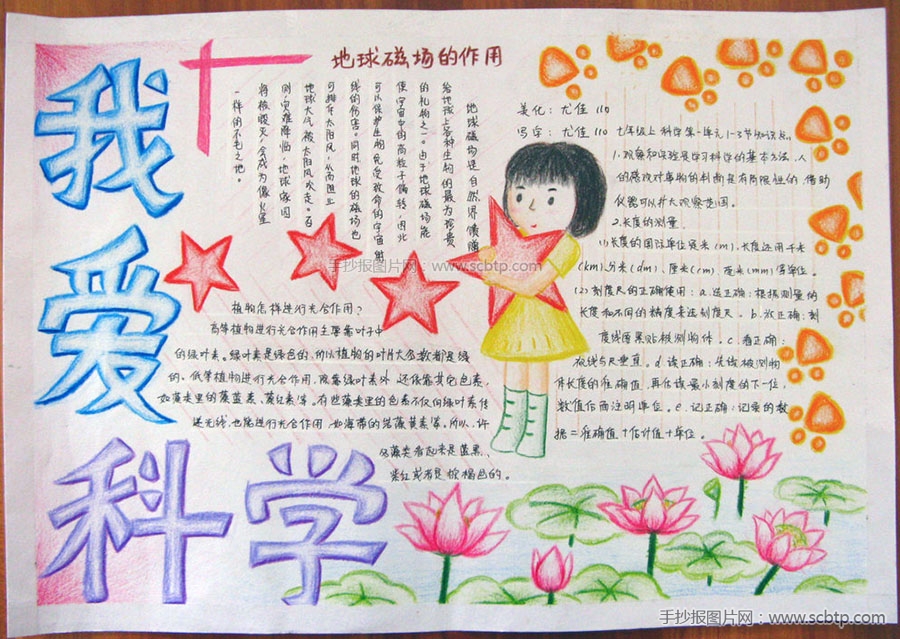 我爱科学
地球磁场的作用
地球磁场是自然界馈赠
给地球上各种生物的最为珍贵
的礼物之一。由于地球磁场能
使宇宙中的高能粒子偏转，因此
可以保护生物免受致命的宇宙射
线的伤害。同时地球的磁场也
可排斥太阳风，从而避免
地球大气被太阳风吹走。否
则，灾难降临，地球家园
将被毁灭，会成为像火星
一样的不毛之地。
植物怎样进行光合作用？
高等植物进行光合作用主要靠叶子中
的绿叶素。绿叶素是绿色的，所以植物的叶片大多数都是绿
的。低等植物进行光合作用，除靠绿叶素外，还依靠其它色素，
如藻类里的藻蓝素、藻红素等。有些藻类里的色素不仅向绿叶素传
送光线，也能进行光合作用，如海带的岩藻黄素等。所以，许
多藻类看起来是蓝黑、
紫红或者是棕褐色的。
美化：尤佳 110
写字：尤佳 110 七年级上科学第一单元1-3节知识点。
1.观察和实验是学习科学的基本方法，人
的感官对事物的判断是有局限性的，借助
仪器可以扩大观察范围。
2.长度的测量。
(1)长度的国际单位是米(m)，长度还用千米
(km)、分米(dm)、厘米(cm)、毫米(mm)等单位。
(2)刻度尺的正确使用：a.选正确：根据测量的
长度和不同的精度要选刻度尺。b.放正确：刻
度线应紧贴被测物体。c.看正确：
视线与尺垂直。d.读正确：先读被测物
体长度的准确值，再估读最小刻度的下一位，
数值后面注明单位。e.记正确：记录的数
据=准确值+估计值+单位。
手抄报图片网：www.scbtp.com
手抄报图片网：www.scbtp.com